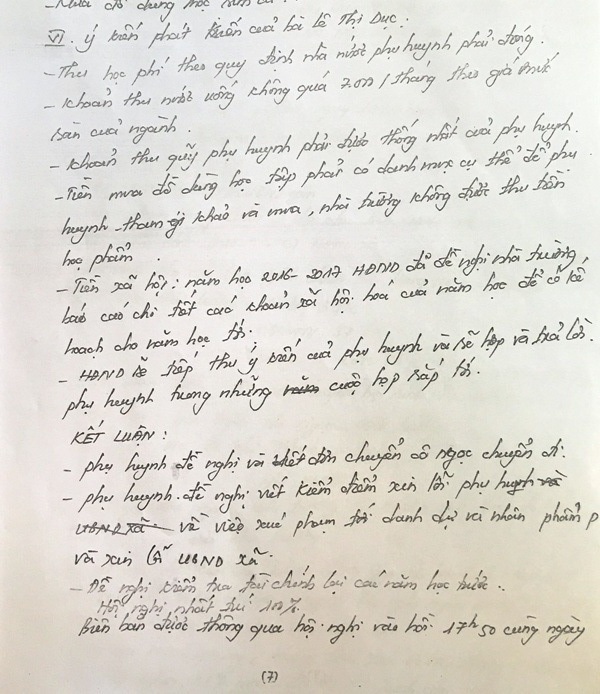 VI. Ý kiến phát biểu của bà Lê Thị Dục.
- Thu học phí theo quy định nhà nước phụ huynh phải đóng.
- Khoản thu nước uống không quá 7000 / tháng theo giá mức
sàn của ngành.
- Khoản thu quỹ phụ huynh phải được thống nhất của phụ huynh.
- Tiền mua đồ dùng học tập phải có danh mục cụ thể để phụ
huynh tham khảo và mua, nhà trường không được thu tiền
học phẩm.
- Tiền xã hội: năm học 2016-2017 HĐND đã đề nghị nhà trường,
báo cáo chi tất các khoản xã hội hoá của năm học để có kế
hoạch cho năm học tới.
- HĐND sẽ tiếp thu ý kiến của phụ huynh và sẽ họp và trả lời
phụ huynh trong những cuộc họp sắp tới.
KẾT LUẬN:
- phụ huynh đề nghị và viết đơn chuyển cô Ngọc chuyển đi.
- phụ huynh đề nghị viết kiểm điểm xin lỗi phụ huynh và
UBND xã về việc xúc phạm tới danh dự và nhân phẩm p
và xin lỗi UBND xã.
- Đề nghị kiểm tra tài chính lại các năm học trước.
Hội nghị nhất trí 100%.
Biên bản được thông qua hội nghị vào hồi 17h50 cùng ngày
(7)